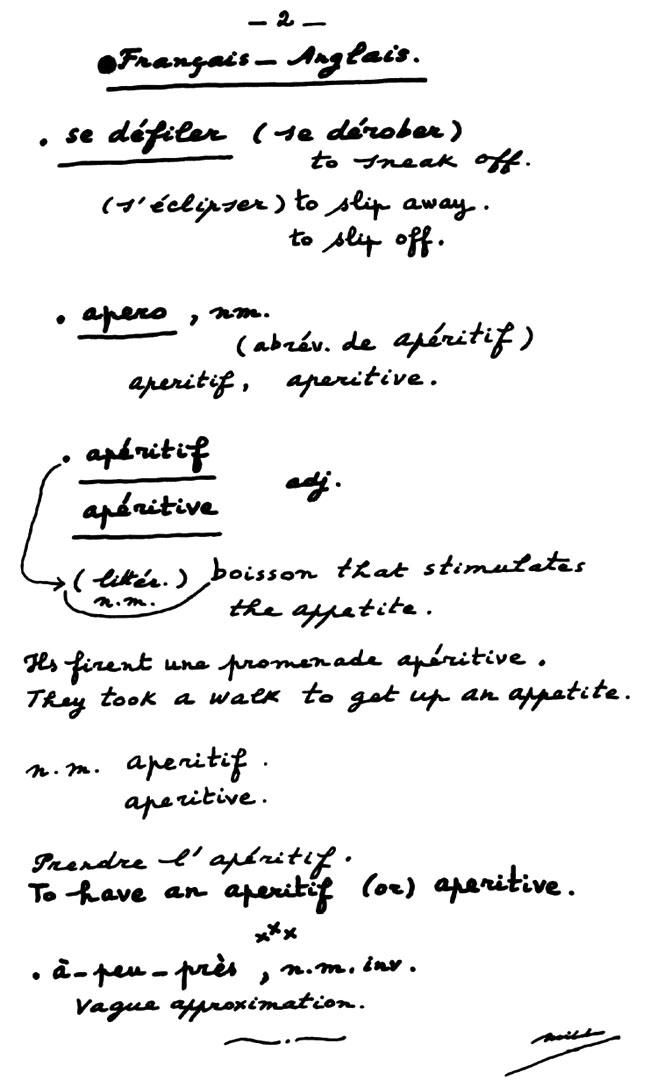 – 2 –
Français – Anglais.
. se défiler (se dérober)
to sneak off.
(s'éclipser) to slip away.
to slip off.
. apero, nm.
(abrév. de apéritif)
aperitif, aperitive.
. apéritif
apéritive adj.
(littér.) boisson that stimulates
n.m. the appetite.
Ils firent une promenade apéritive.
They took a walk to get up an appetite.
n.m. aperitif.
aperitive.
Prendre l'apéritif.
To have an aperitif (or) aperitive.
x x x
. à-peu-près, n.m. inv.
Vague approximation.